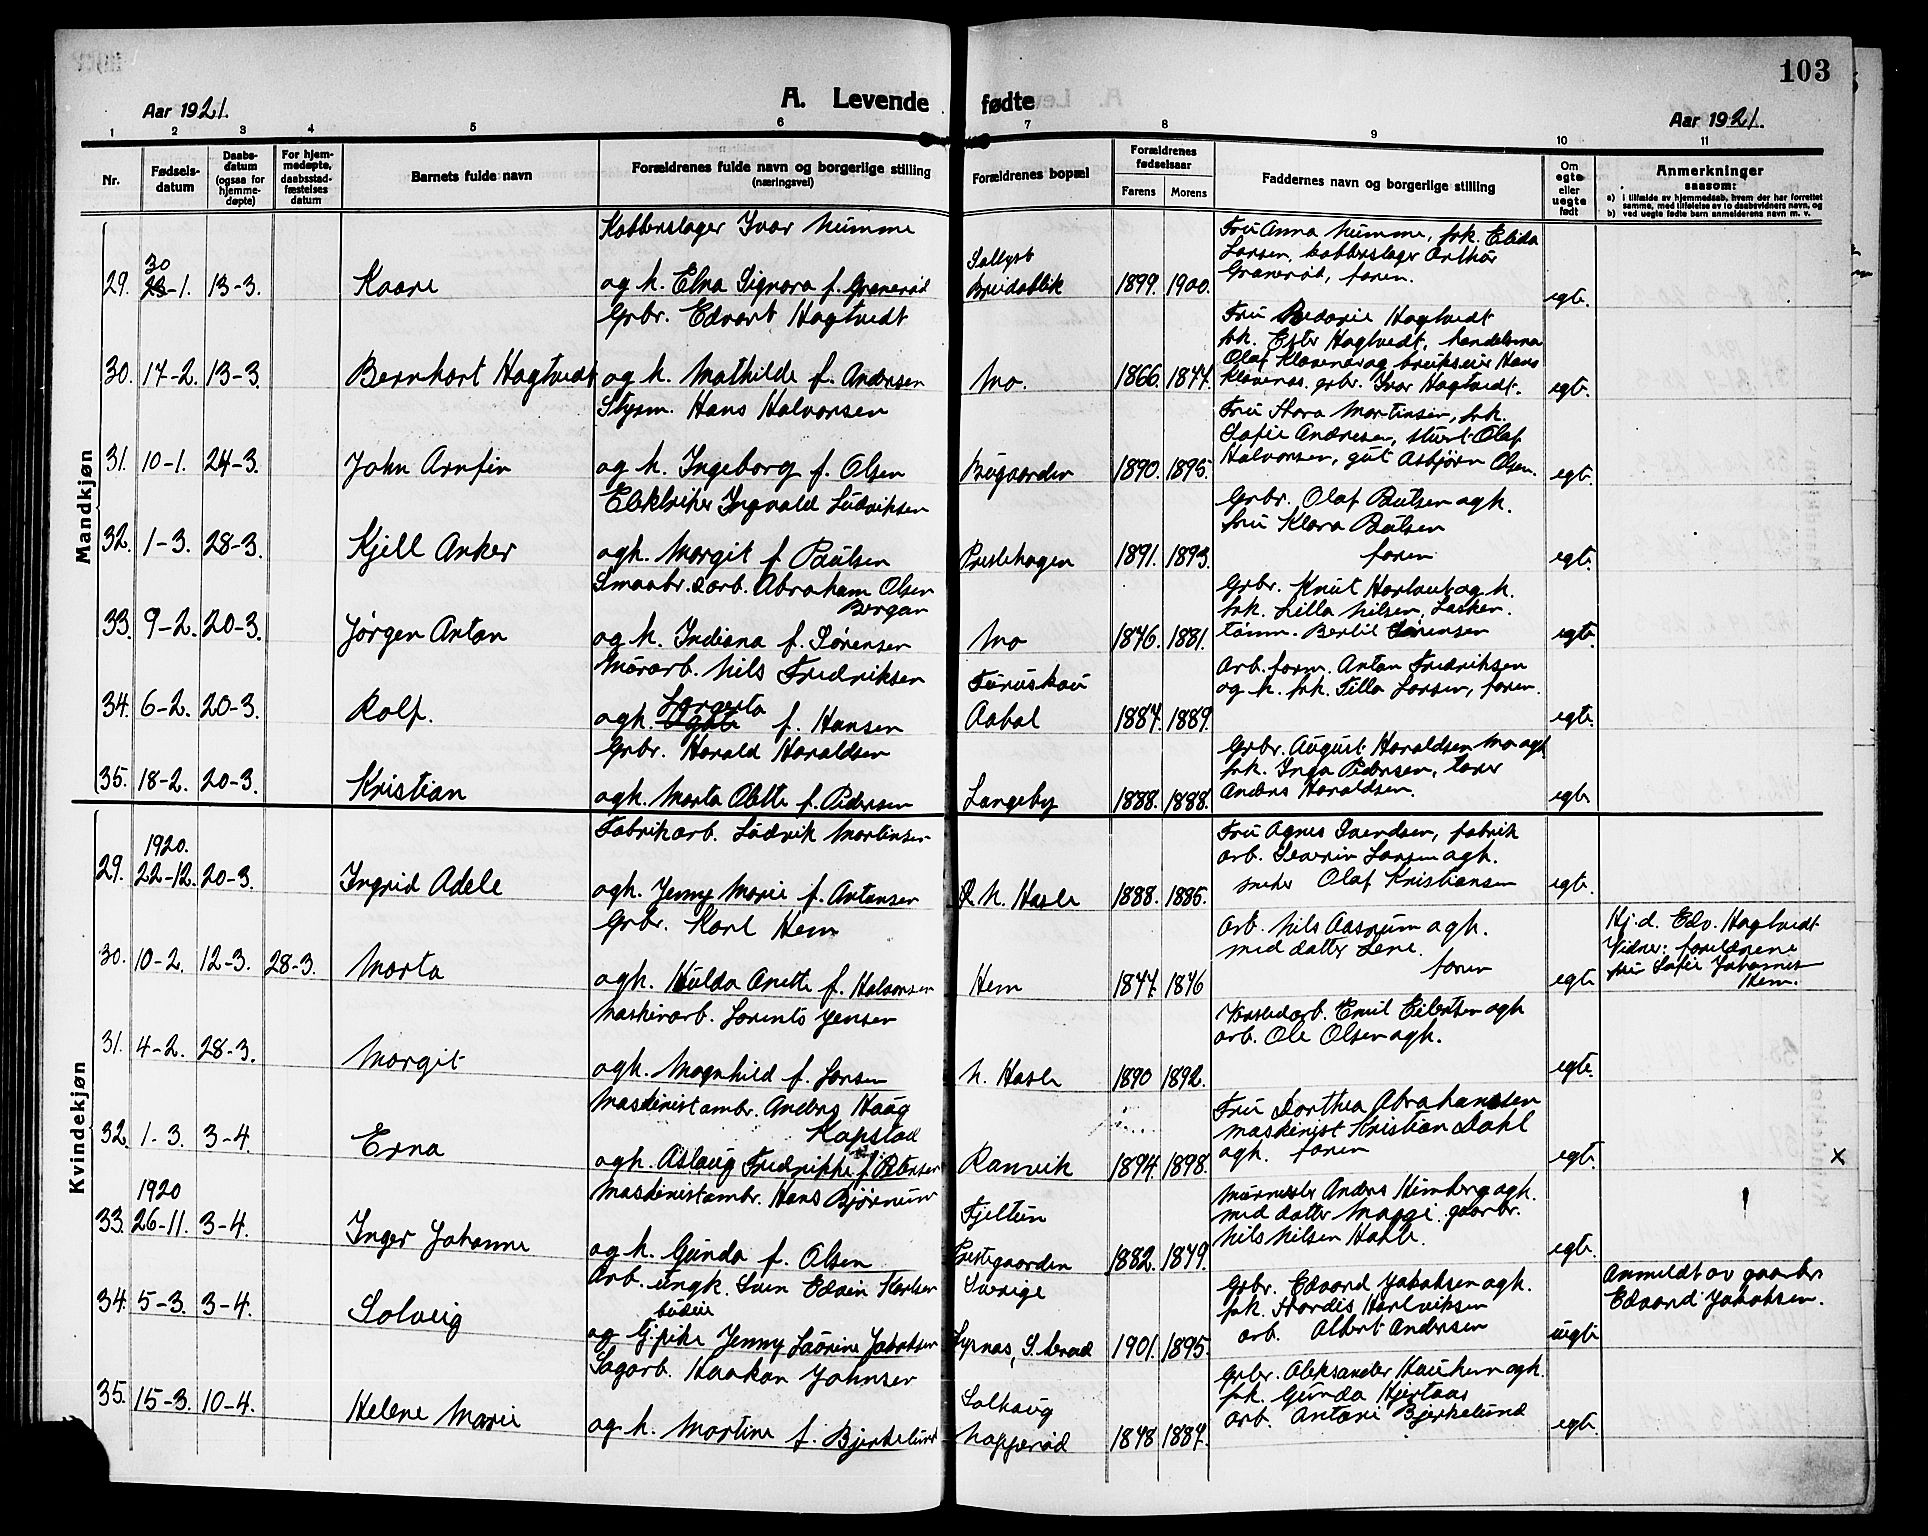 103
Aar 1921.
A. Levende fødte
Aar 1921.
1 2 3 4 5 6 7 8 9 10 11
Nr.
Fødsels-
datum
Daabs-
datum
(ogsaa for
hjemme-
døpte)
For hjem-
medøpte,
daabsstad-
fæstelses
datum
Barnets fulde navn
Forældrenes fulde navn og borgerlige stilling
(næringsvei)
Forældrenes bopæl
Forældrenes
fødselsaar
Farens Morens
Faddernes navn og borgerlige stilling
Om
egte
eller
uegte
født
Anmerkninger
saasom:
a) i tilfælde av hjemmedaab, hvem der har forrettet
samme, med tilføielse av to daabsvidners navn, og
b) ved uegte fødte barn anmelderens navn m. v.
Mandkjøn
29. 30 23-1. 13-3. Kaare
Kobberslager Ivar Numme
og h. Elna Signora f. Granerød
Solbyst
Breidablik
1899. 1900.
Fru Anna Numme, frk. Elida
Larsen, kobberslager Arthur
Granerød, faren.
egte.
30. 17-2. 13-3. Bernhart Hagtvedt
Grbr. Edvart Hagtvedt
og h. Mathilde f. Andersen
Mo.
1866. 1877.
Fru Hagtvedt
frk. Ester Hagtvedt, handelsma
Olaf Klavenes og brukseier Hans
Klavenes. grbr. Ivar Hagtvedt.
egte.
31. 10-1. 24-3. John Arnfin
Styrm. Hans Halvorsen
og h. Ingeborg f. Olsen
Bugaarden
1890. 1895.
Fru Martinsen, frk.
Sofie Andresen, stuert Olaf
Halvorsen, gut Asbjørn Olsen.
egte.
32. 1-3. 28-3. Kjell Anker
Elektriker Ingvald Ludviksen
ogh. Margit f. Paulsen
Prestehagen
1891. 1893.
Grbr. Olaf Paulsen ogh.
fru Klara Paulsen
faren
egte.
33. 9-2. 20-3. Jørgen Anton
Smaabr. & arb. Abraham Olsen
Bergan
og h. Indiana f. Sørensen
Mo
1876. 1881.
Grbr. Knut og h.
frk. Lilla Nilsen, Lasken
tømm. Bertil Sørensen
egte.
34. 6-2. 20-3. Rolf.
Murarb. Nils Fredriksen
ogh. Lagerta f. Hansen
Furuskau
Aabol
1887. 1889.
Arb. form. Anton Fredriksen
og h. frk. Tilla Larsen, faren.
egte.
35. 18-2. 20-3. Kristian
Grbr. Harald Haraldsen
ogh. Marta Olette f. Pedersen
Langeby
1888. 1888.
Grbr. August Haraldsen Mo ogh
frk. Inga Pedersen, tarer
Anders Haraldsen.
egte
Kvindekjøn
29. 1920. 22-12. 20-3. Ingrid Adele
Fabrikarb. Ludvik Martinsen
ogh. Jenny Marie f. Antonsen
N. Hasle
1888. 1885.
Fru Agnes Svendsen, fabrik
arb. Severin Larsen ogh.
Olaf Kristiansen
egte.
30. 10-2. 12-3. 28-3. Marta
Grbr. Karl Hem
ogh. Hulda Anette f. Halvorsen
Hem
1877. 1876
Arb. Nils Aasrum ogh.
med datter Lene.
faren
egte
Hj.d. Edv. Hagtvedt
Vidner: forældrene
fru Sofie Johannes
Hem.
31. 4-2. 28-3. Margit
Maskinarb. Lorents Jensen
ogh. Magnhild f. Larsen
N. Hasle
1890 1892.
Verkstedarb. Emil Eilertsen ogh
arb. Ole Olsen ogh.
egte.
32. 1-3. 3-4. Erna
Maskinist ambr. Anders Haug
Kapstad
ogh. Aslaug Fredrikke f. Petersen
Ranvik
1894. 1898.
Fru Dorthea Abrahamsen
maskinist Kristian Dahl
ogh. faren
egte.
x
33. 1920 26-11. 3-4. Inger Johanne
Maskinist ambr. Hans Bjørnum
og h. Gunda f. Olsen
Fjeltun
Prestegaarden
1882. 1879.
Murmester Anders Himberg ogh.
med datter Maggi. gaarbr.
Nils Nilsen Hasle.
egte.
34. 5-3. 3-4. Solveig
Arb. ungk. Sven Edvin Karlsen
budeie
og G. pike Jenny Laurine Jakobsen
Sverige
Lyrnes, S. Nerød
1901. 1895.
Grbr. Edvard Jakobsen ogh.
frk. Hjordis Harlviksen
arb. Albert Andersen
uegte
Anmeldt av gaarbr.
Edvard Jakobsen.
35. 15-3. 10-4. Helene Marie
Sagarb. Haakon Johnsen
og h. Martine f. Bjerkelund
Solhaug
Napperød
1878 1887.
Grbr. Aleksander Haukem ogh.
frk. Gunda Hjertaas
arb. Antoni Bjerkelund
egte.